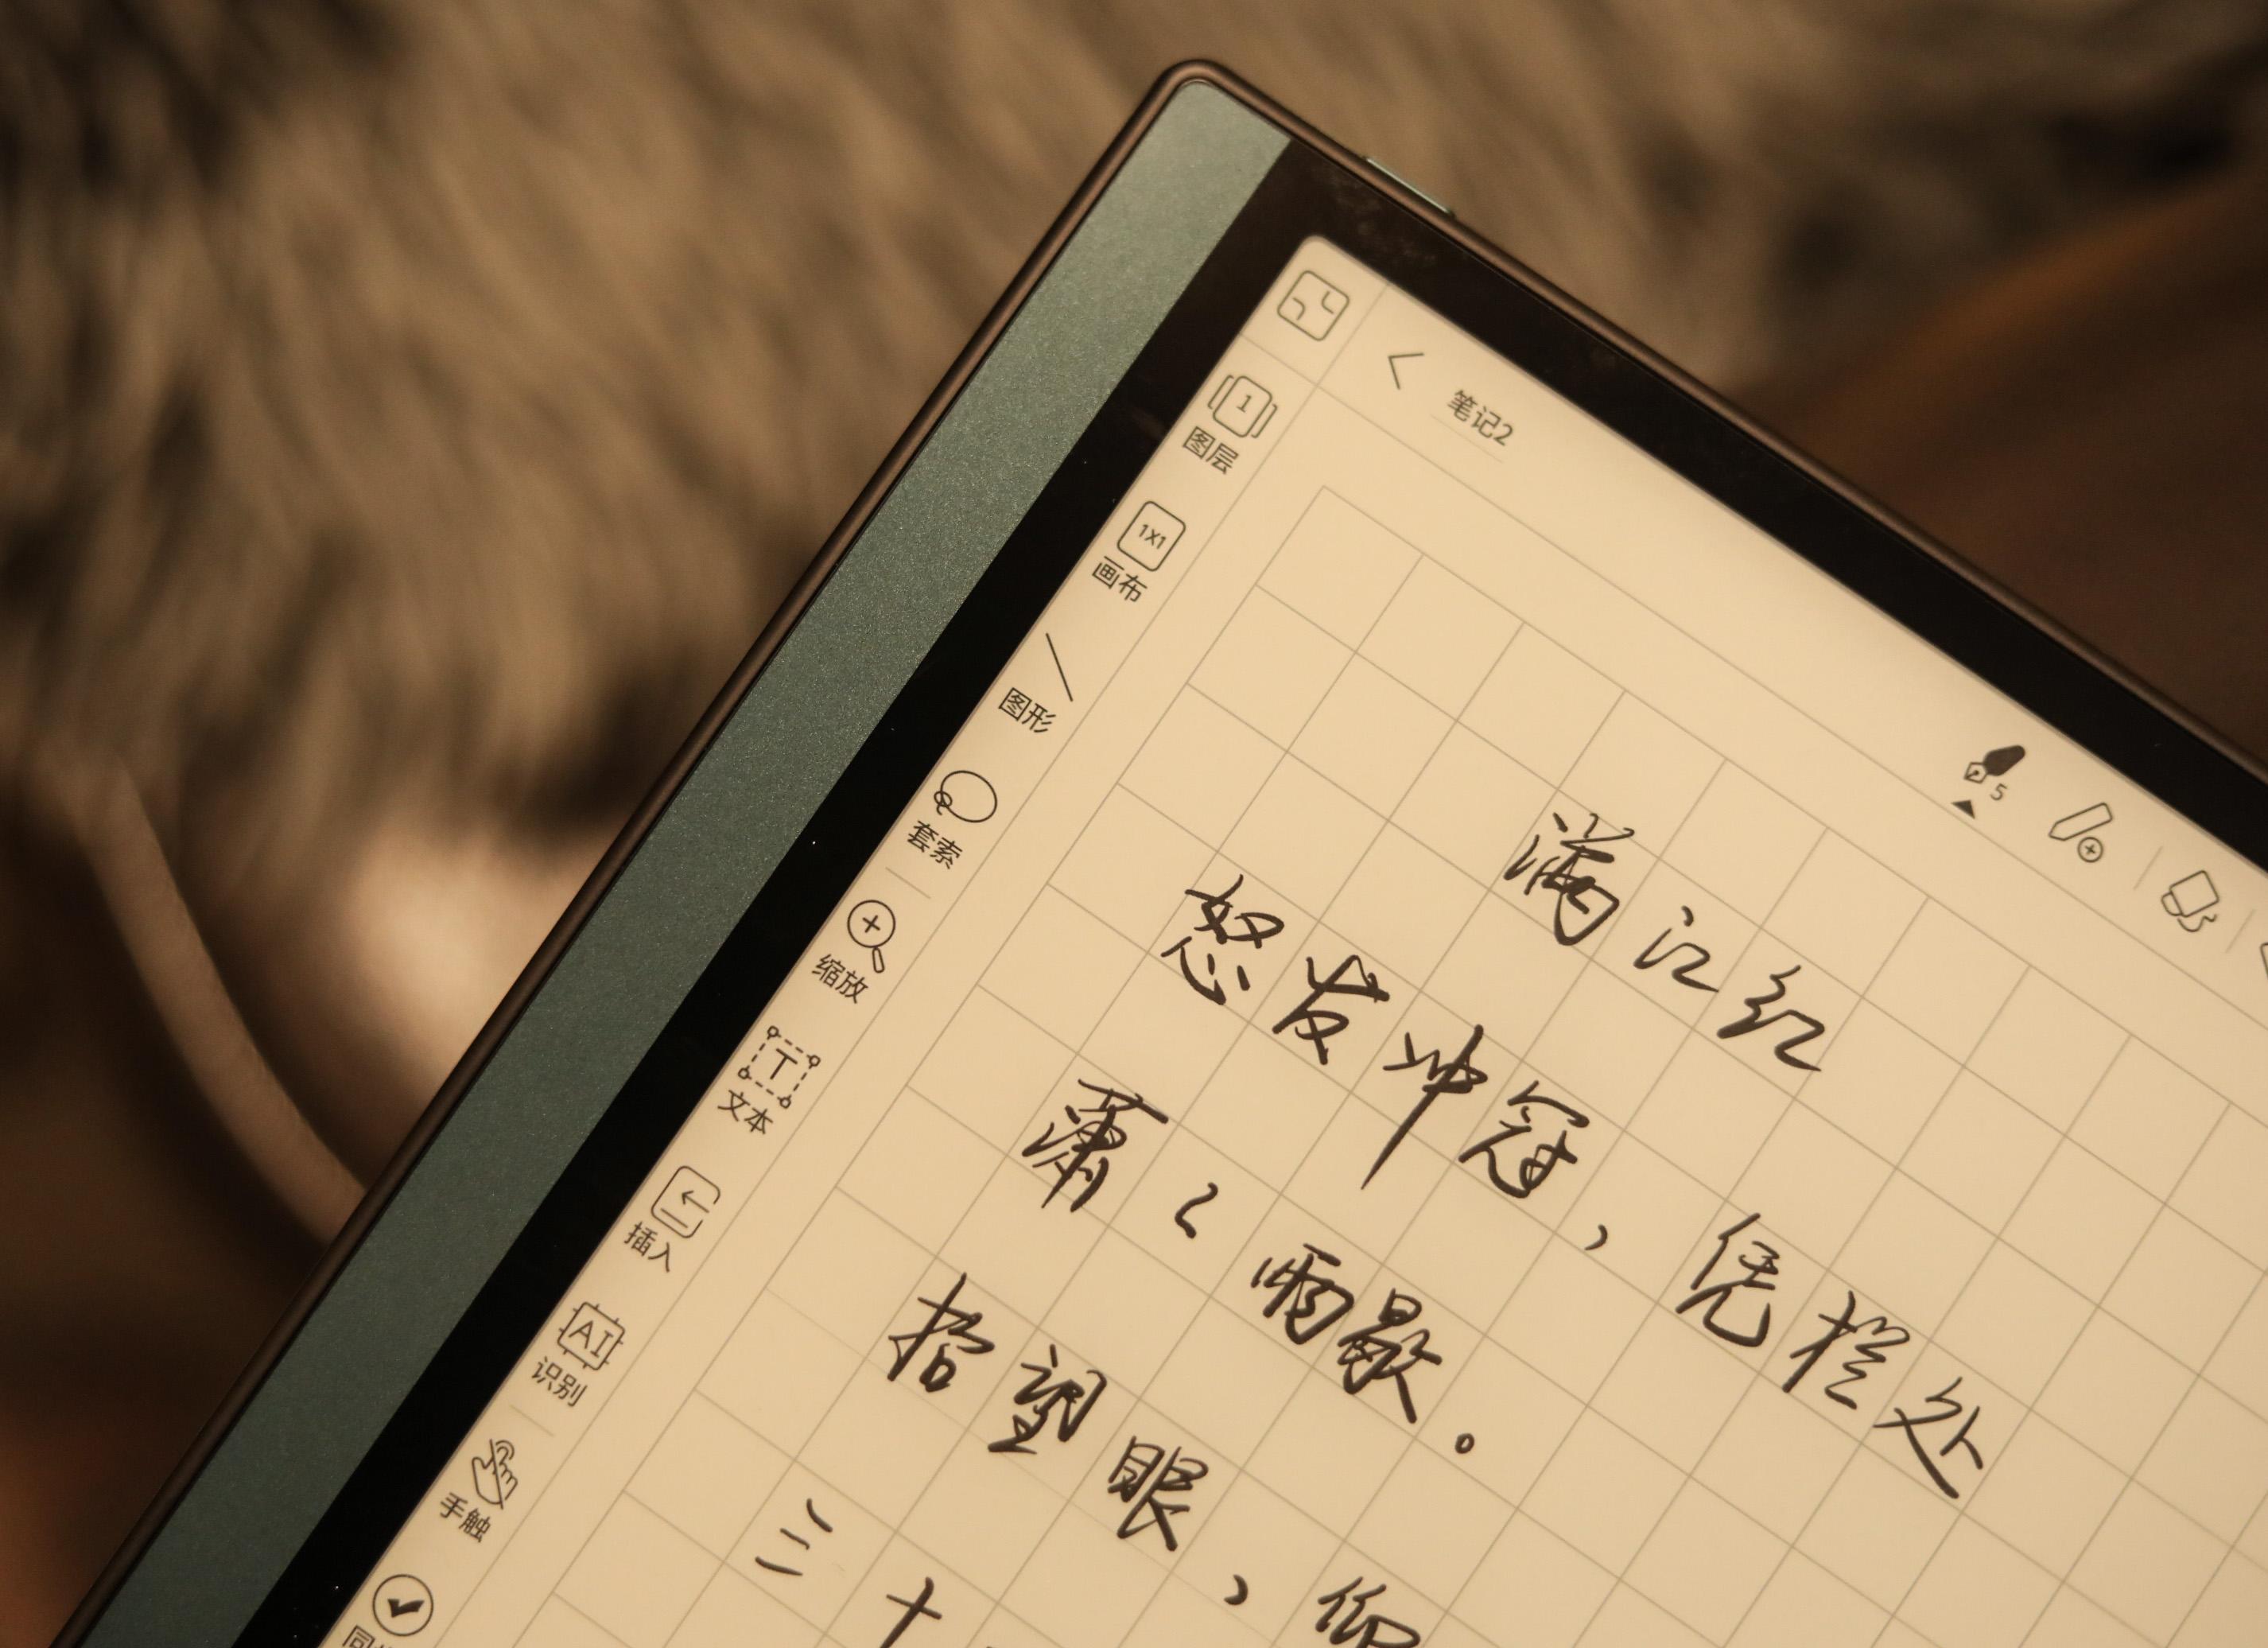 笔记2
1
图层
1X1
画布
图形
套索
缩放
T
文本
插入
AI
识别
手触
5
满江红
怒发冲冠，凭栏处
潇〻雨歇。
抬望眼，仰
三十